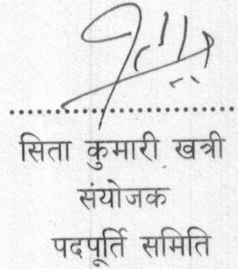 सिता कुमारी खत्री
संयोजक
पदपूर्ति समिति